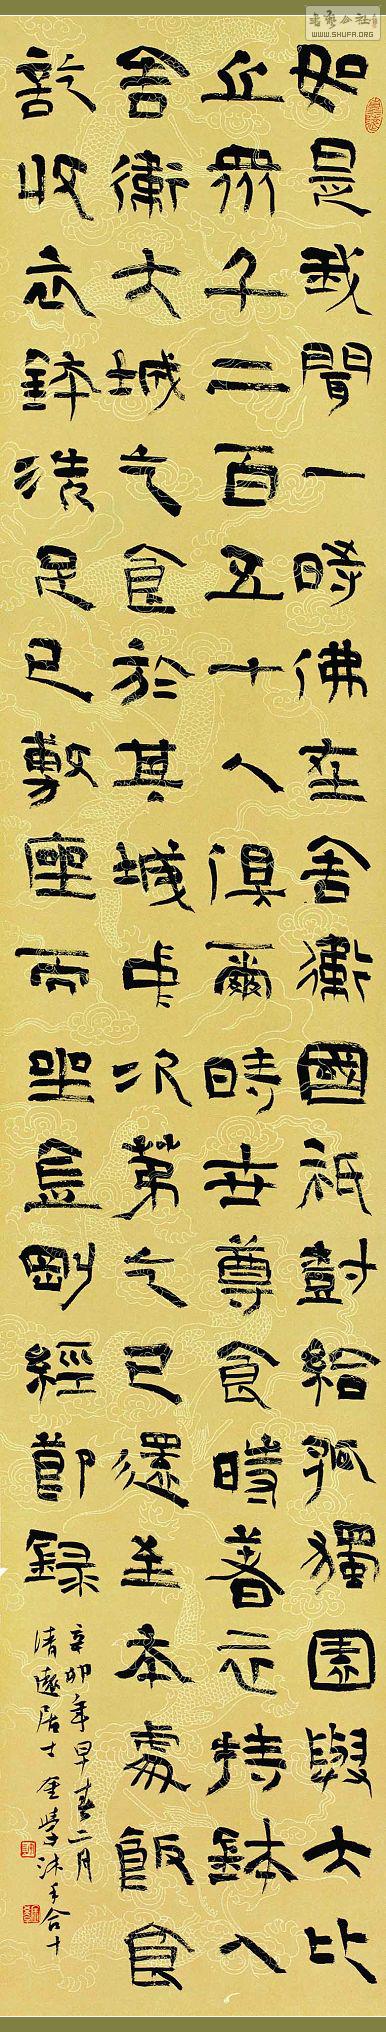 书艺公社
WWW.SHUFA.ORG
如是我聞一時佛在舍衛國祇樹給孤獨園與大比
丘眾千二百五十人俱爾時世尊食時著衣持鉢入
舍衛大城乞食於其城中次第乞已還至本處飯食
訖收衣鉢洗足已敷座而坐金剛經節録
辛卯年早春二月
清遠居士金學沐手合十